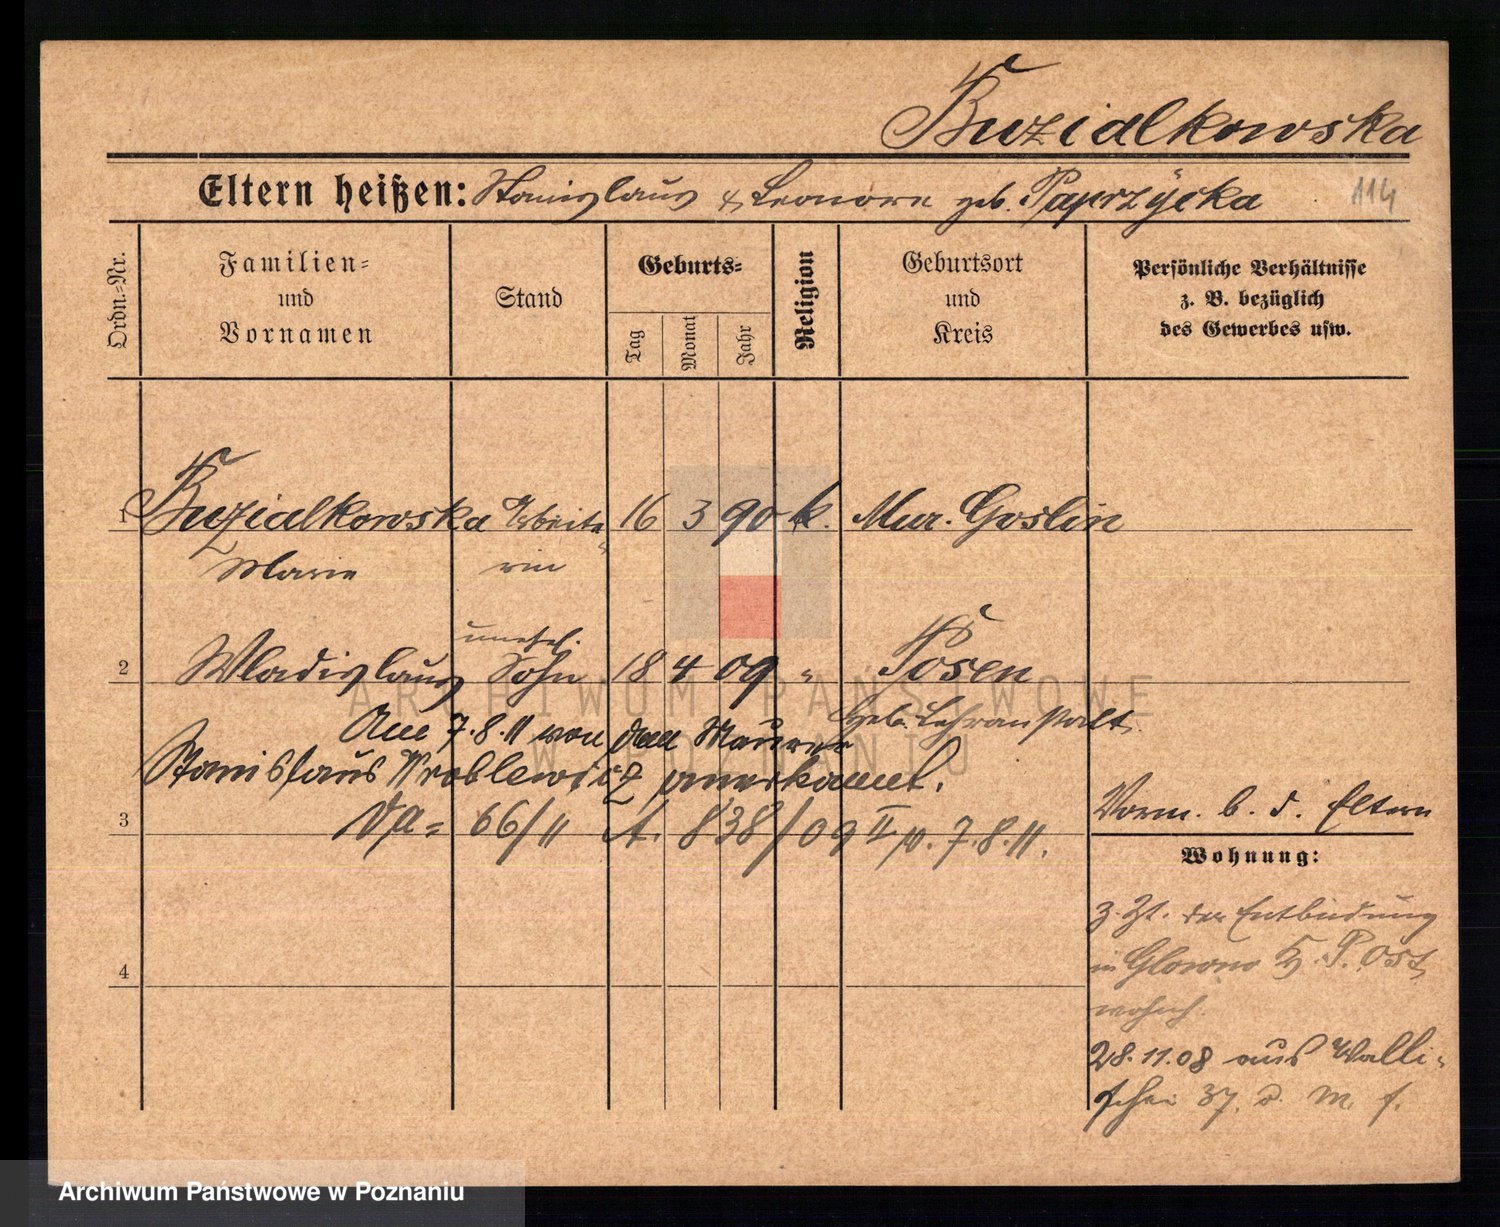 Buzialkowska
Eltern heißen: Stanislaus & Leonore geb. Paprzÿcka
114
Ordn.-Nr.
Familien-
und
Vornamen
Stand
Geburts-
Tag
Monat
Jahr
Religion
Geburtsort
und
Kreis
Persönliche Verhältnisse
z. B. bezüglich
des Gewerbes usw.
1 Buzialkowska Arbeite- 16 3 90 k. Mur. Goslin
Marie rin
unehel.
2 Wladislaus Sohn 18 4 09 " Posen
Heb. Lehranstalt.
Am 7.8.11 von dem Maurer
Stanislaus Wroblewicz anerkannt.
3 66/11 A. 838/09 II v. 7.8.11.
Vorm. b. d. Eltern
Wohnung:
z. Zt. der Entbindung
in Glowno Kr. P. Ost
wohnh.
4
28.11.08 aus Walli-
schei 37.
ARCHIWUM PAŃSTWOWE
W POZNANIU
Archiwum Państwowe w Poznaniu